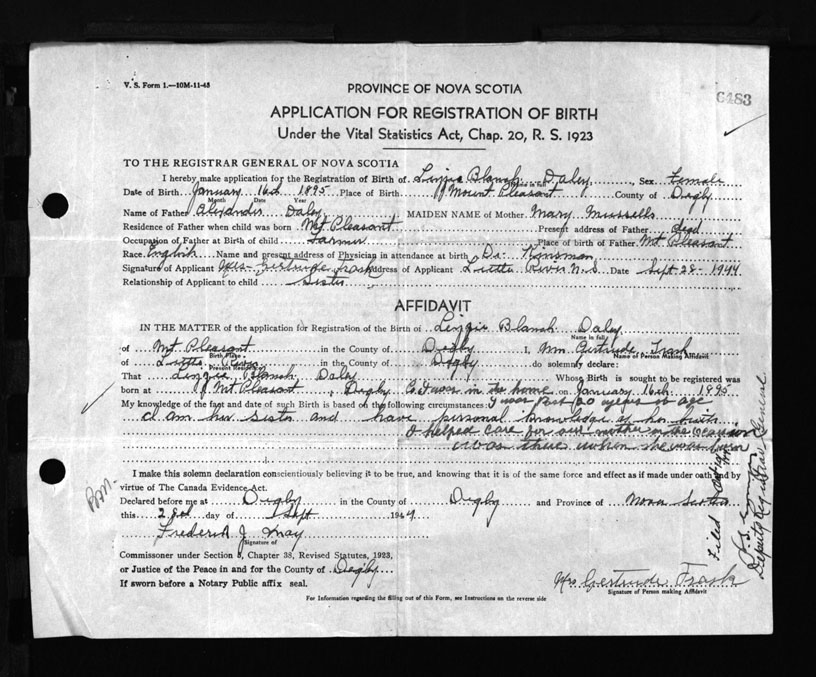 V. S. Form 1.—10M-11-43
PROVINCE OF NOVA SCOTIA
6483
APPLICATION FOR REGISTRATION OF BIRTH
Under the Vital Statistics Act, Chap. 20, R. S. 1923
TO THE REGISTRAR GENERAL OF NOVA SCOTIA
I hereby make application for the Registration of Birth of Lizzie Blanch Daley, Sex Female
Name in full
Date of Birth January 16th 1895 Place of Birth Mount Pleasant County of Digby
Month Date Year
Name of Father Alexander Daley MAIDEN NAME of Mother Mary Mussells
Residence of Father when child was born Mt Pleasant Present address of Father dead
Occupation of Father at Birth of child Farmer Place of birth of Father Mt Pleasant
Race English Name and present address of Physician in attendance at birth Dr. Kinsman
Signature of Applicant Mrs Gertrude Trask Address of Applicant Little River N.S Date Sept 28-1944
Relationship of Applicant to child Sister
AFFIDAVIT
IN THE MATTER of the application for Registration of the Birth of Lizzie Blanch Daley
Name in full
of Mt Pleasant in the County of Digby I, Mrs. Gertrude Trask
Birth Place Name of Person Making Affidavit
of Little River in the County of Digby do solemnly declare:
Present Residence
That Lizzie Blanch Daley Whose Birth is sought to be registered was
born at Mt Pleasant, Digby Co I was in the home on January 16th 1895
My knowledge of the fact and date of such Birth is based on the following circumstances: I was past 20 years of age
I am her sister and have personal knowledge of her birth
I helped care for our mother on the occasion
I was there when she was born
I make this solemn declaration conscientiously believing it to be true, and knowing that it is of the same force and effect as if made under oath and by
virtue of The Canada Evidence Act.
Declared before me at Digby in the County of Digby and Province of Nova Scotia
this 28th day of Sept 1944
Frederick J May
Signature of
Commissioner under Section 3, Chapter 38, Revised Statutes, 1923,
or Justice of the Peace in and for the County of Digby
If sworn before a Notary Public affix seal.
Mrs Gertrude Trask
Signature of Person making Affidavit
For Information regarding the filling out of this Form, see Instructions on the reverse side
Filed
Deputy Registrar General